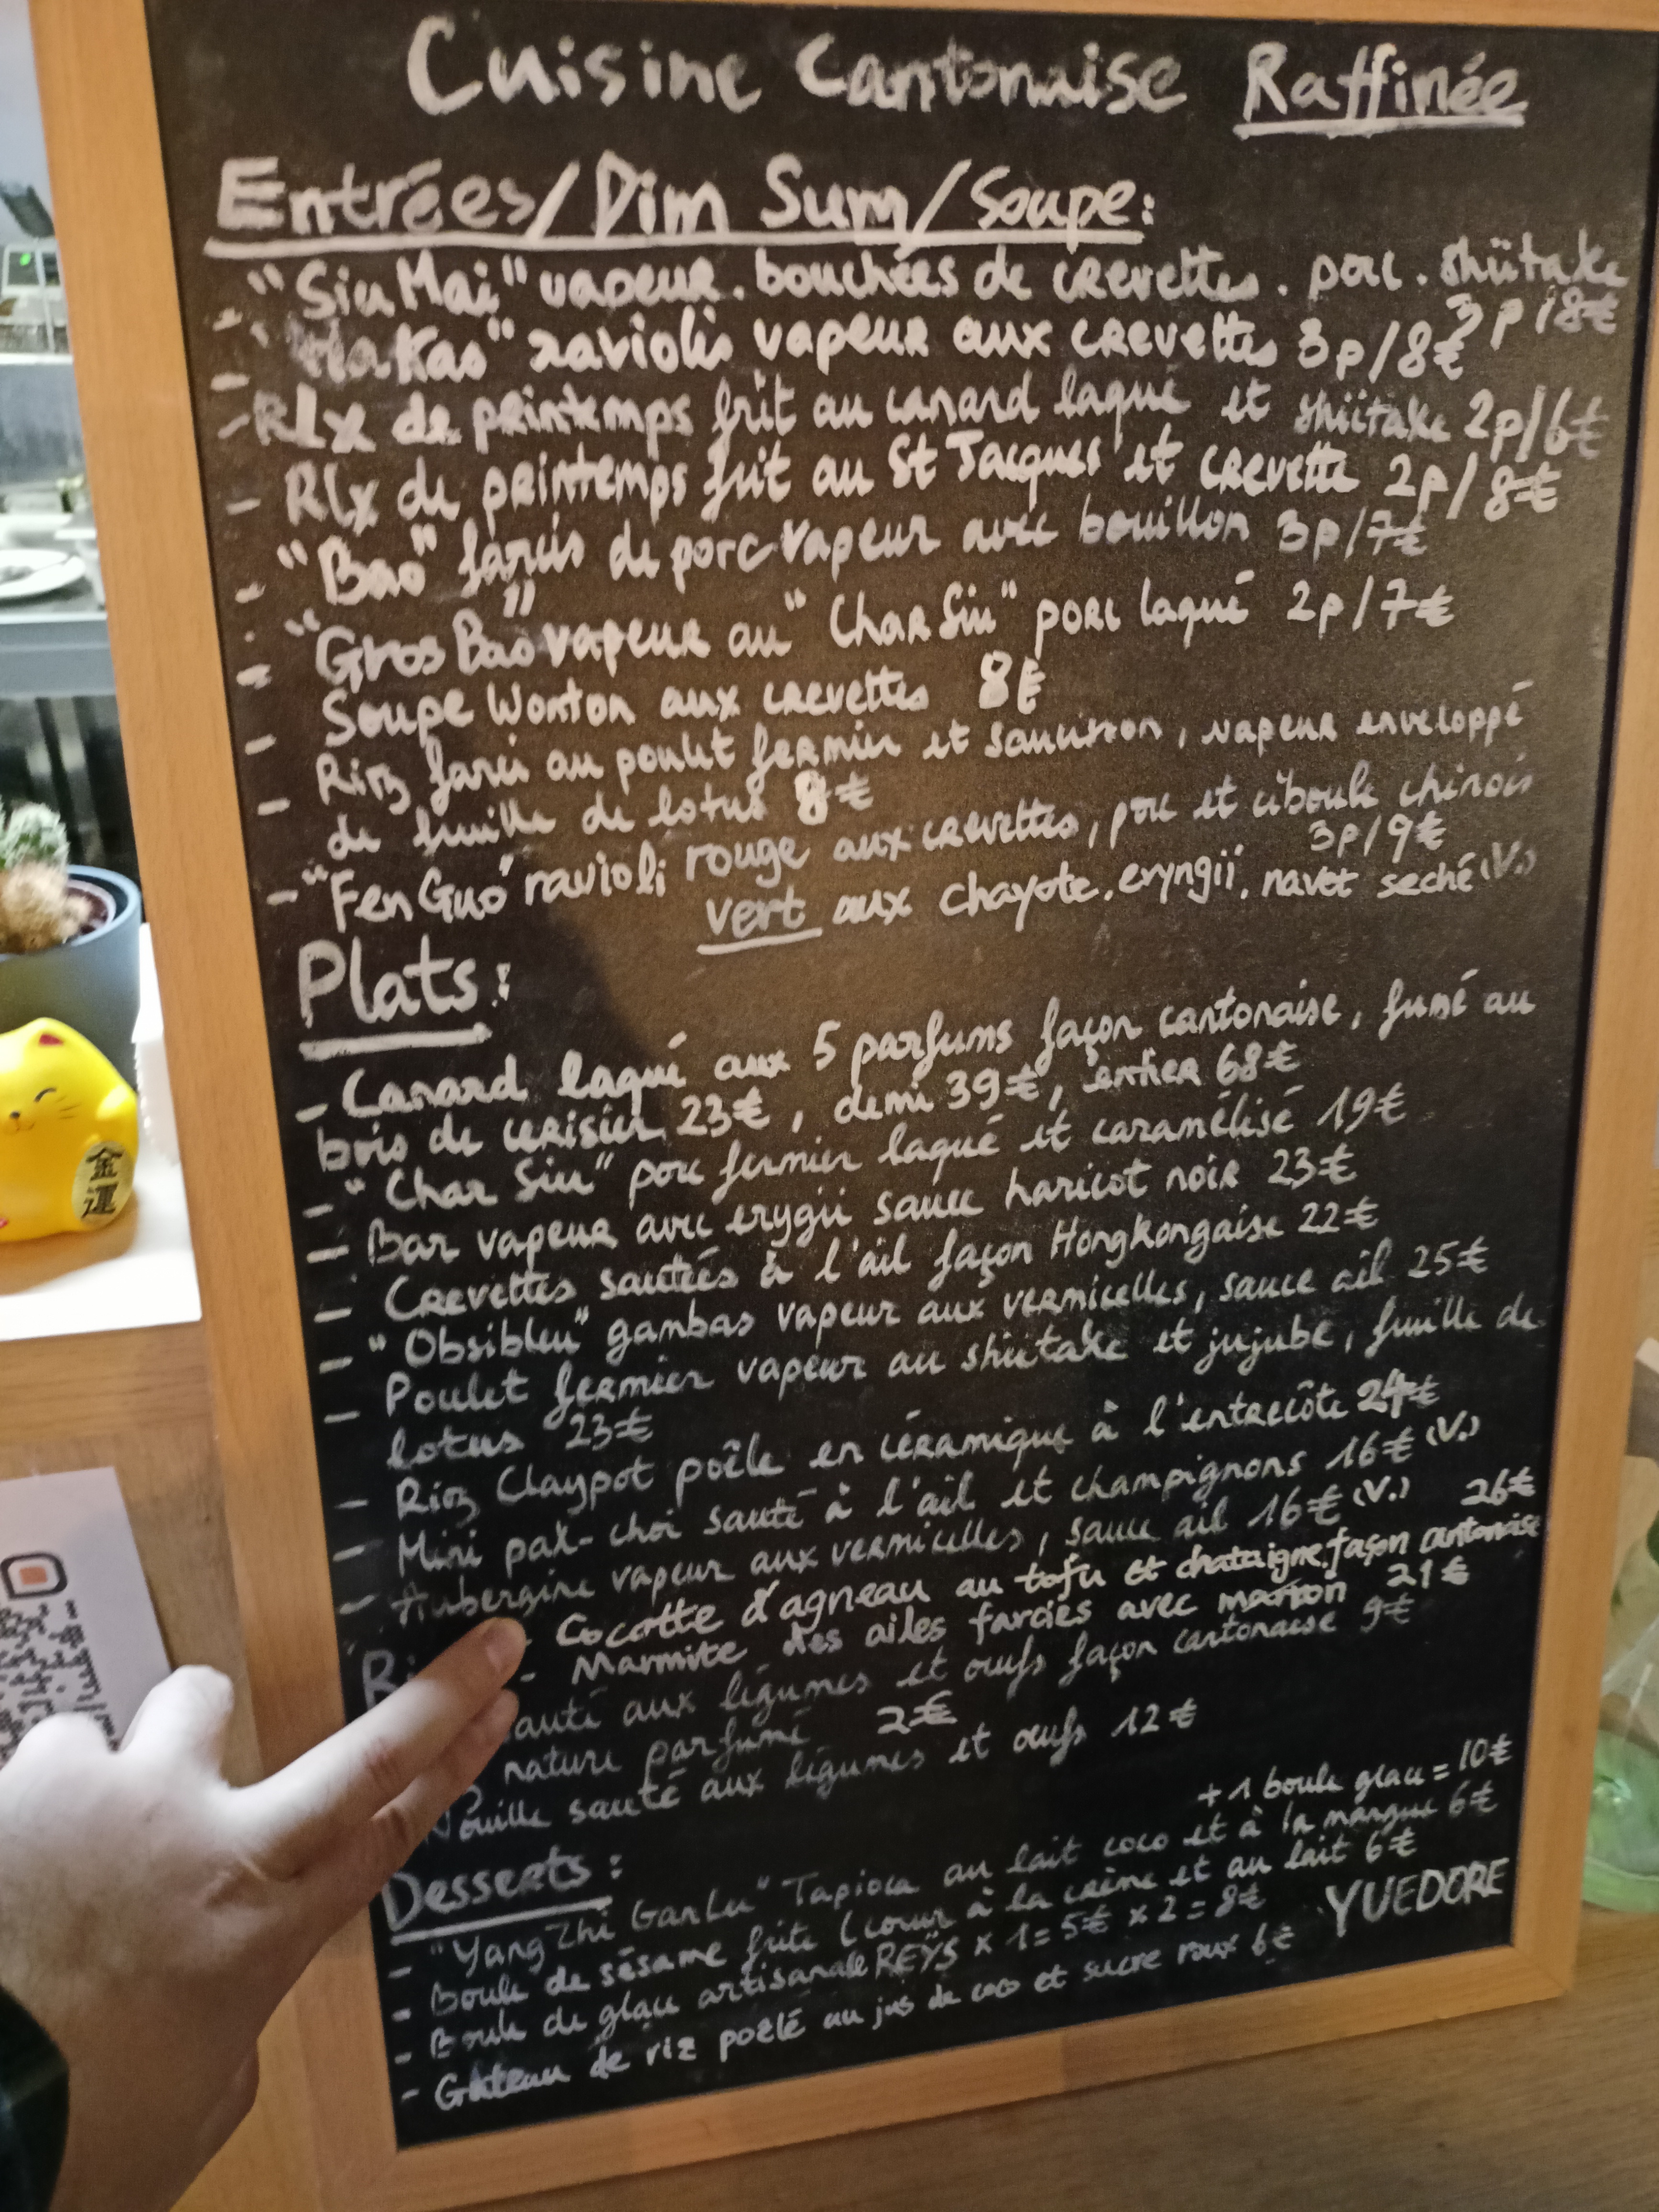 Cuisine Cantonaise Raffinée
Entrées/Dim Sum/Soupe:
- "Siu Mai" vapeur. bouchées de crevettes. porc. shiitake
3p/8€
- "Ha Kao" raviolis vapeur aux crevettes 3p/8€
- Rlx de printemps frit au canard laqué et shiitake 2p/6€
- Rlx de printemps frit au St Jacques et crevette 2p/8€
- "Bao" farcis de porc vapeur avec bouillon 3p/7€
- "Gros Bao" vapeur au "Char Siu" porc laqué 2p/7€
- Soupe Wonton aux crevettes 8€
- Riz farci au poulet fermier et saucisson, vapeur enveloppé
de feuille de lotus 8€
- "Fen Guo" ravioli rouge aux crevettes, porc et ciboule chinois
3p/9€
vert aux chayote. eryngii. navet seché (V.)
Plats:
- Canard laqué aux 5 parfums façon cantonaise, fumé au
bois de cerisier 23€, demi 39€, entier 68€
- "Char Siu" porc fermier laqué et caramélisé 19€
- Bar vapeur avec erygii sauce haricot noir 23€
- Crevettes sautées à l'ail façon Hongkongaise 22€
- "Obsibleu" gambas vapeur aux vermicelles, sauce ail 25€
- Poulet fermier vapeur au shiitake et jujube, feuille de
lotus 23€
- Riz Claypot poêle en céramique à l'entrecôte 24€
- Mini pak-choi sauté à l'ail et champignons 16€ (V.)
- Aubergine vapeur aux vermicelles, sauce ail 16€ (V.)
26€
- Cocotte d'agneau au tofu et chataigne. façon cantonaise
- Marmite des ailes farcies avec marron 21€
sauté aux légumes et oeufs façon cantonaise 9€
nature parfumé 2€
Nouille sauté aux légumes et oeufs 12€
Desserts:
+ 1 boule glace = 10€
- "Yang Zhi Gan Lu" Tapioca au lait coco et à la mangue 6€
- Boule de sésame frite (coeur à la crème et au lait 6€
- Boule de glace artisanale REŸS x 1 = 5€ x 2 = 8€
- Gateau de riz poêlé au jus de coco et sucre roux 6€
YUEDORE
金
運